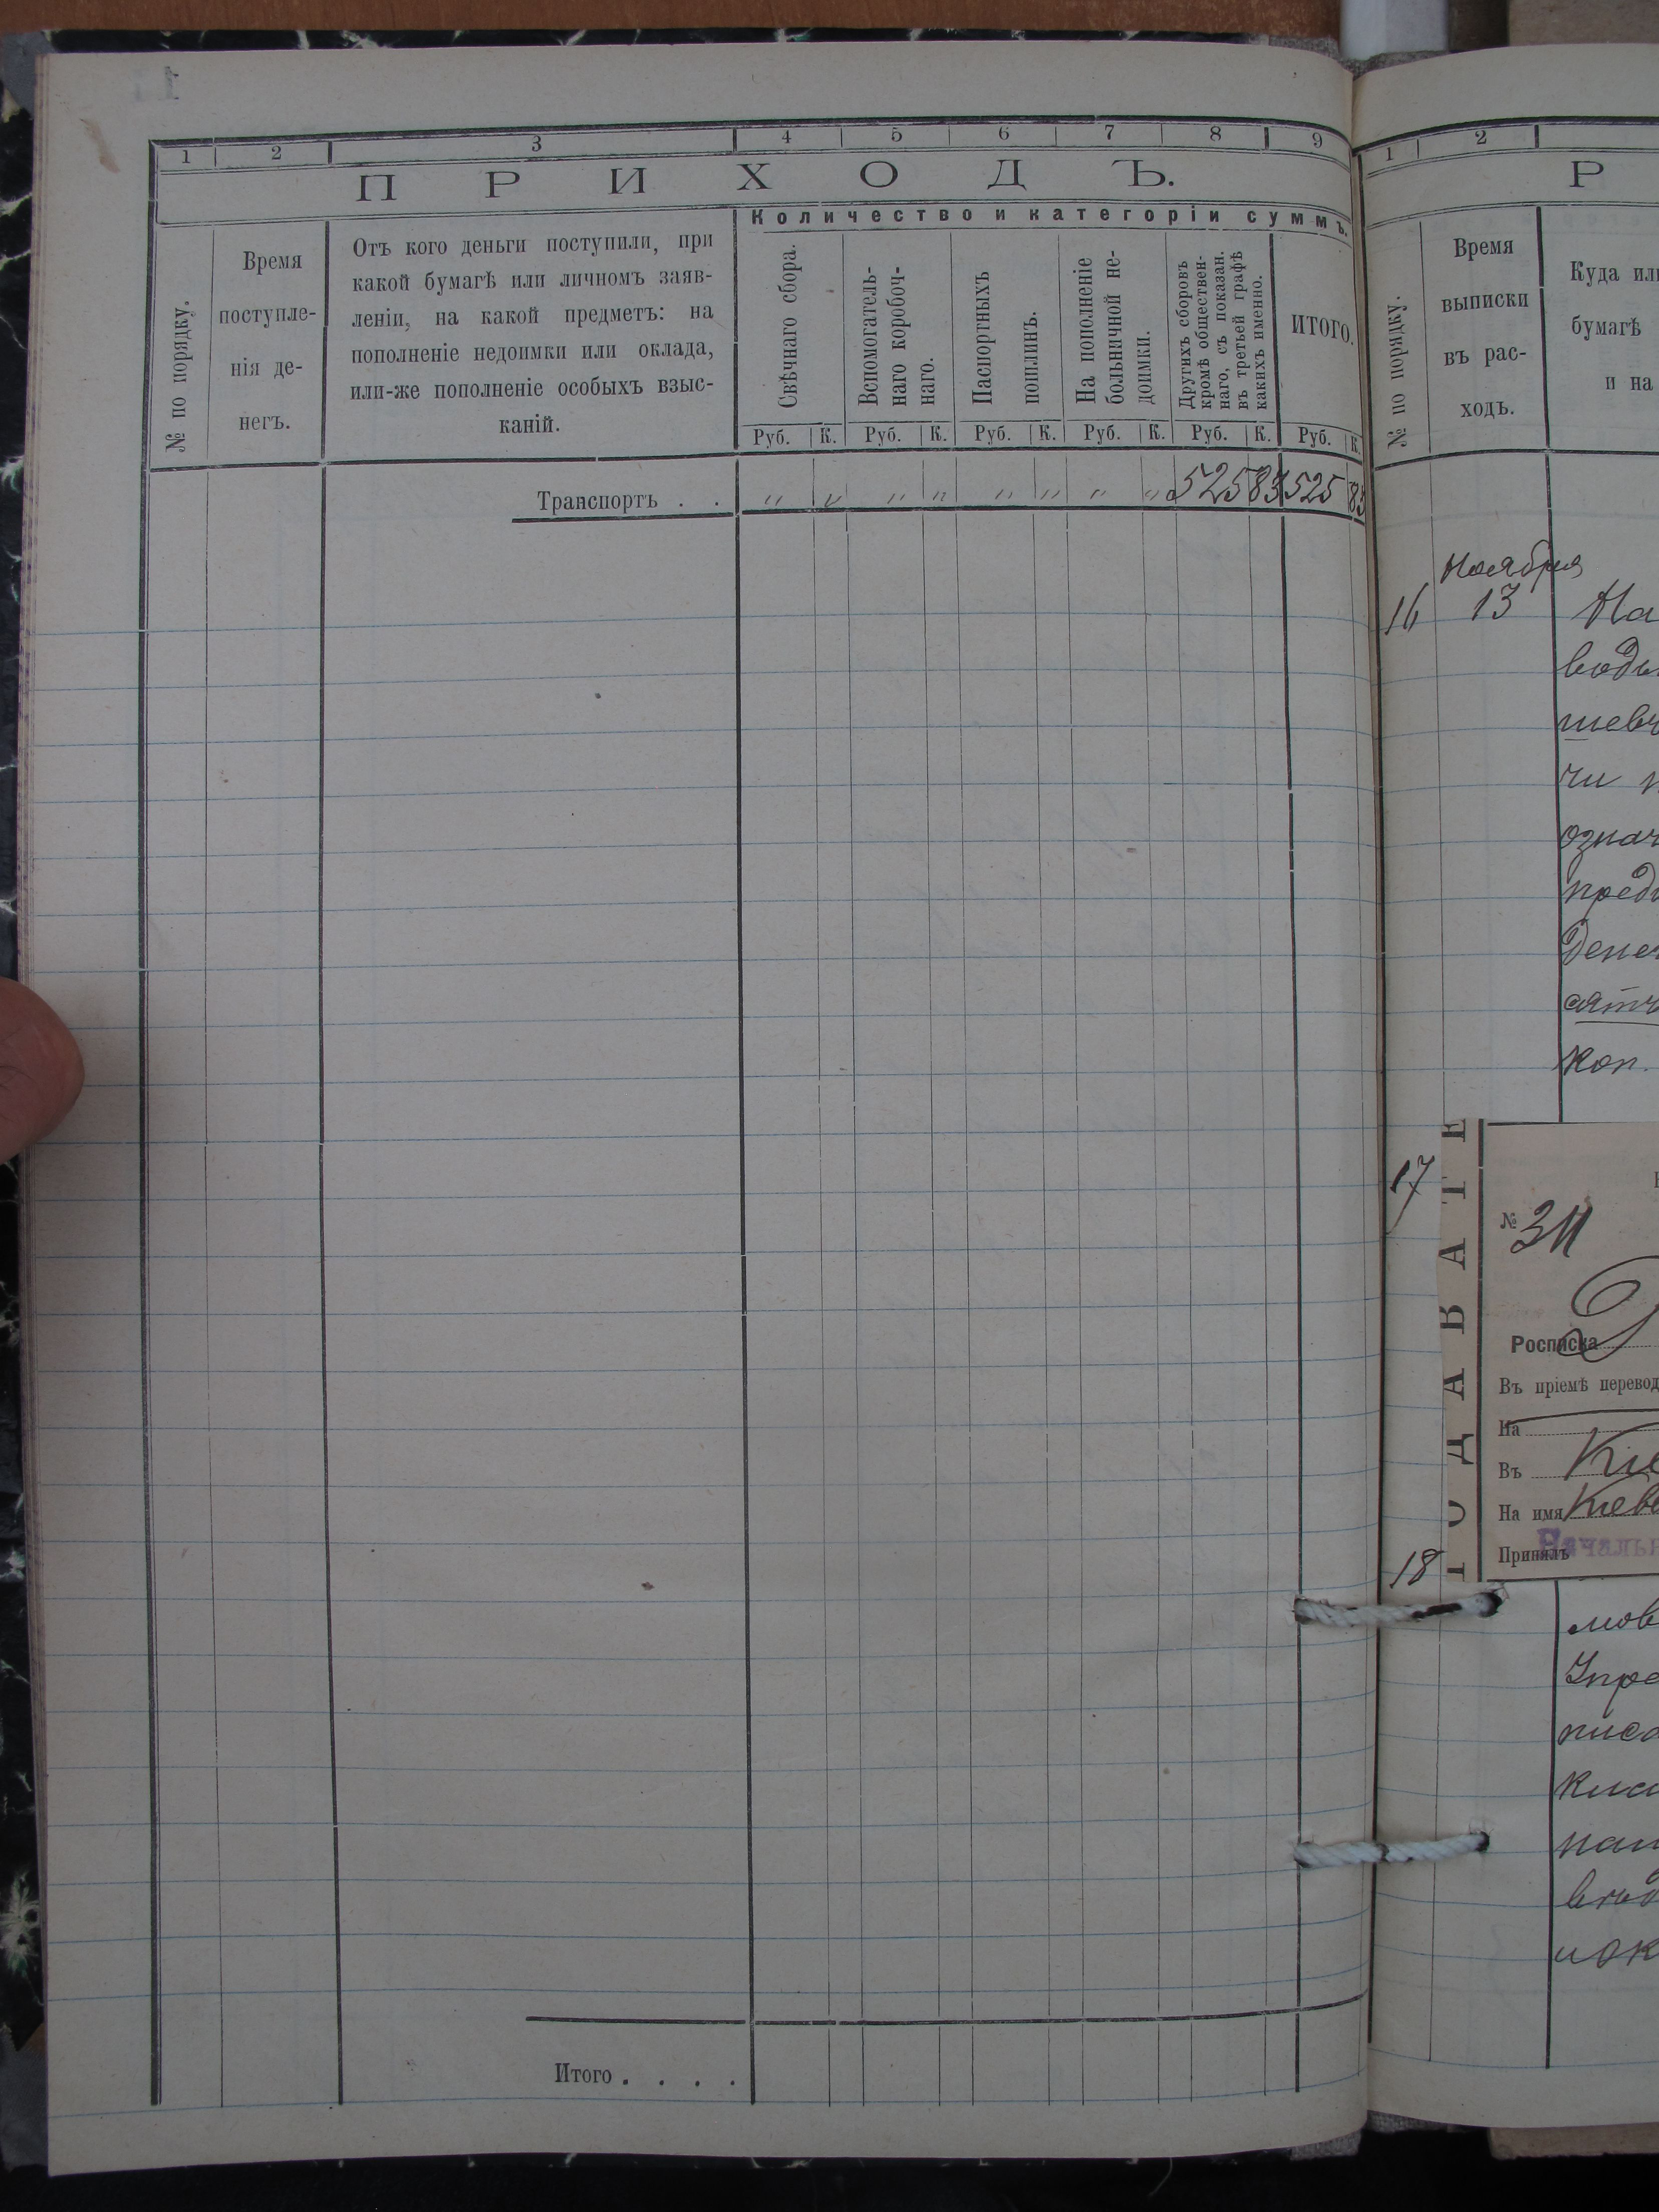 1 2 3 4 5 6 7 8 9
ПРИХОДЪ.
Количество и категоріи суммъ.
№ по порядку.
Время
поступле-
нія де-
негъ.
Отъ кого деньги поступили, при
какой бумагѣ или личномъ заяв-
леніи, на какой предметъ: на
пополненіе недоимки или оклада,
или-же пополненіе особыхъ взыс-
каній.
Свѣчнаго сбора.
Вспомогатель-
наго коробоч-
наго.
Паспортныхъ
пошлинъ.
На пополненіе
больничной не-
доимки.
Другихъ сборовъ
кромѣ обществен-
наго, съ показан.
въ третьей графѣ
какихъ именно.
ИТОГО.
Руб. К. Руб. К. Руб. К. Руб. К. Руб. К. Руб. К.
Транспортъ . . " " " " " " " " 525 83 525 83
Итого . . . .
1 2
Р
№ по порядку.
Время
выписки
въ рас-
ходъ.
Куда или
бумагѣ
и на
Ноября
16 13 На
кон.
17
№ 311
Росписка
Въ пріемѣ перевод
На
Въ Кіе
На имя Кіев
Принялъ
Началь
ПОДАВАТЕ
18